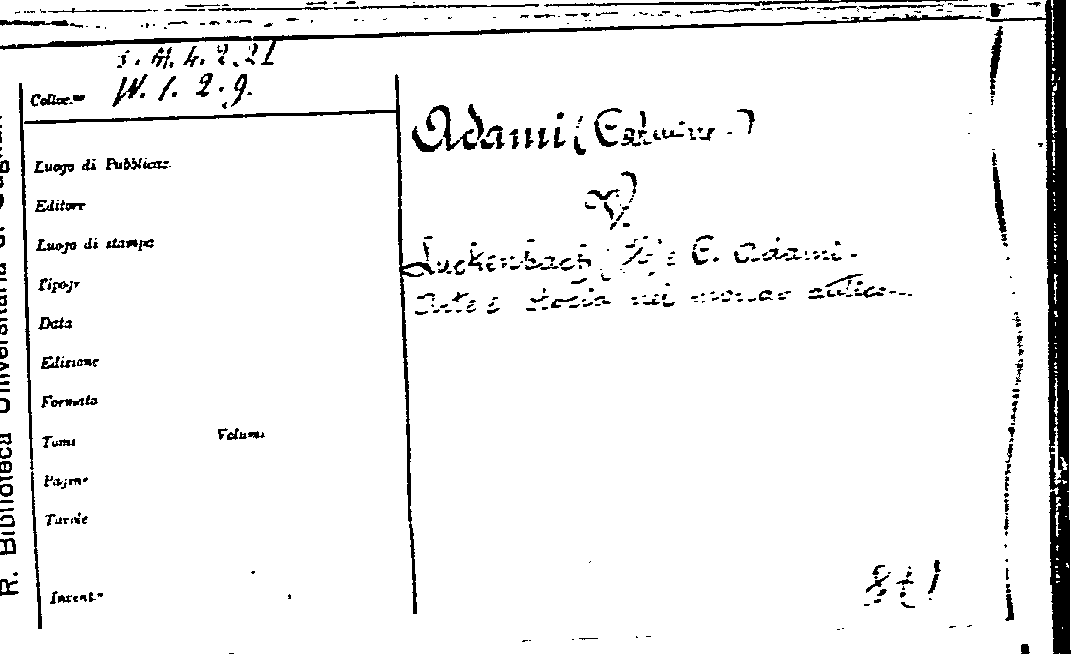 R. Biblioteca Universitaria di Cagliari
S. M. 4. 2. 21
W. 1. 2. 9.
Colloc.ne
Luogo di Pubblicaz.
Editore
Luogo di stampa
Tipogr
Data
Edizione
Formato
Tomi Volumi
Pagine
Tavole
Invent.o
Adami (
V
Luckenbach (H) e C. Adami.
Arte e storia nel mondo antico